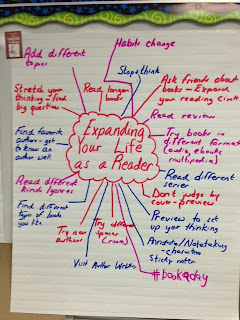 Habits change
Add different
topics
Stop + think
Ask friends about
books - Expand
your reading circle
Stretch your
thinking - find
big question
Read longer
books
Read review
Expanding
Your Life
as a Reader
Try books in
different formats
(audio, ebooks,
multipedia)
Find favorite
author - get to
know an
author well
Read different
series
Read different
kinds/genres
Don't judge by
cover - preview
Find different
type of books
you like.
Try new
authors
Try different
spaces
Preview to set
up your thinking
Annotation/Notetaking
- characters
Sticky notes
Visit Author Website
#bookaday